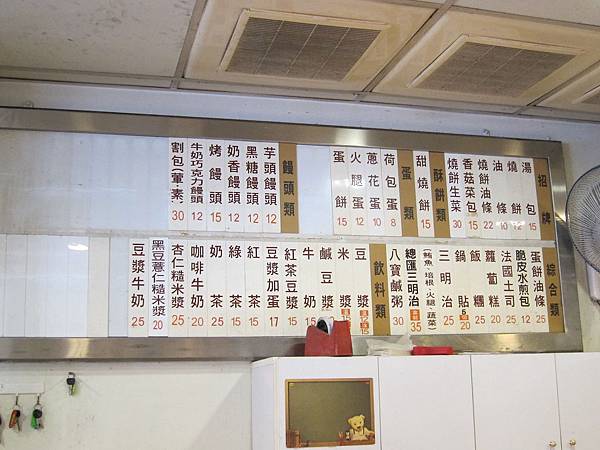 招牌
湯包 15
燒餅 12
油條 10
燒餅油條 22
香菇菜包 15
燒餅生菜 30
酥餅類
甜燒餅 15
蛋類
荷包蛋 8
蔥花蛋 10
火腿蛋 12
蛋餅 15
饅頭類
芋頭饅頭 12
黑糖饅頭 12
奶香饅頭 12
烤饅頭 15
牛奶巧克力饅頭 12
割包(葷‧素) 30
綜合類
蛋餅油條 25
脆皮水煎包 12
法國土司 25
蘿蔔糕 20
飯糰 25
鍋貼 20
三明治 25
(鮪魚、培根、火腿、蔬菜)
總匯三明治 35
八寶鹹粥 30
飲料類
豆漿
米漿
鹹豆漿
牛奶 15
紅茶豆漿 15
豆漿加蛋 17
紅茶 15
綠茶 15
奶茶 15
咖啡牛奶 20
杏仁糙米漿 25
黑豆薏仁糙米漿 20
豆漿牛奶 25